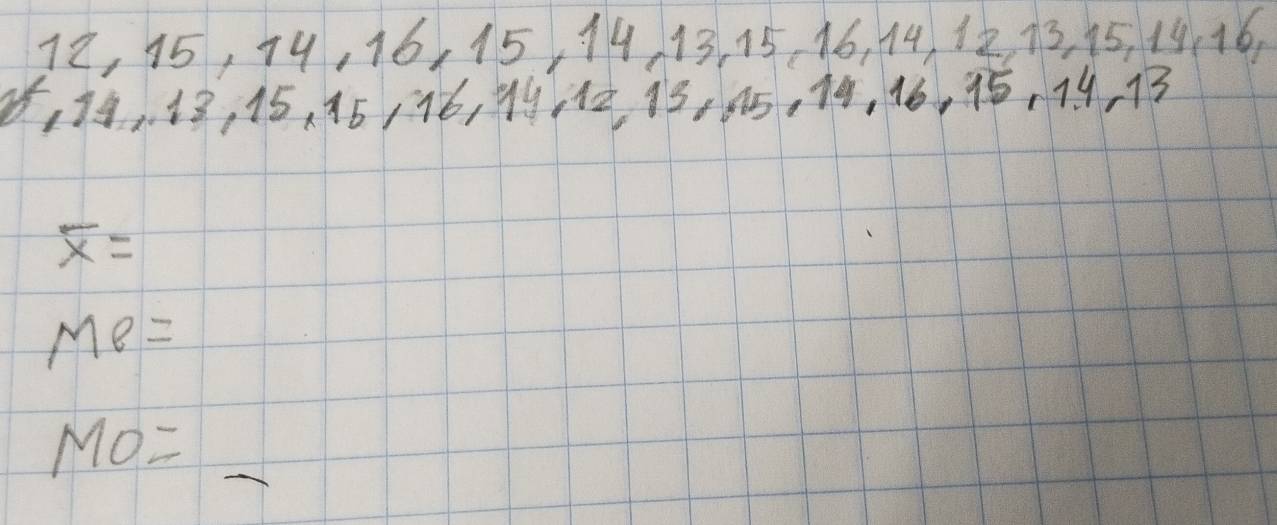 12, 15, 14, 16, 15, 14, 13, 15, 16, 14, 12, 13, 15, 14, 16,
14, 13, 15, 15, 16, 14, 12, 13, 15, 14, 16, 15, 14, 13
x̄ =
Me =
Mo =